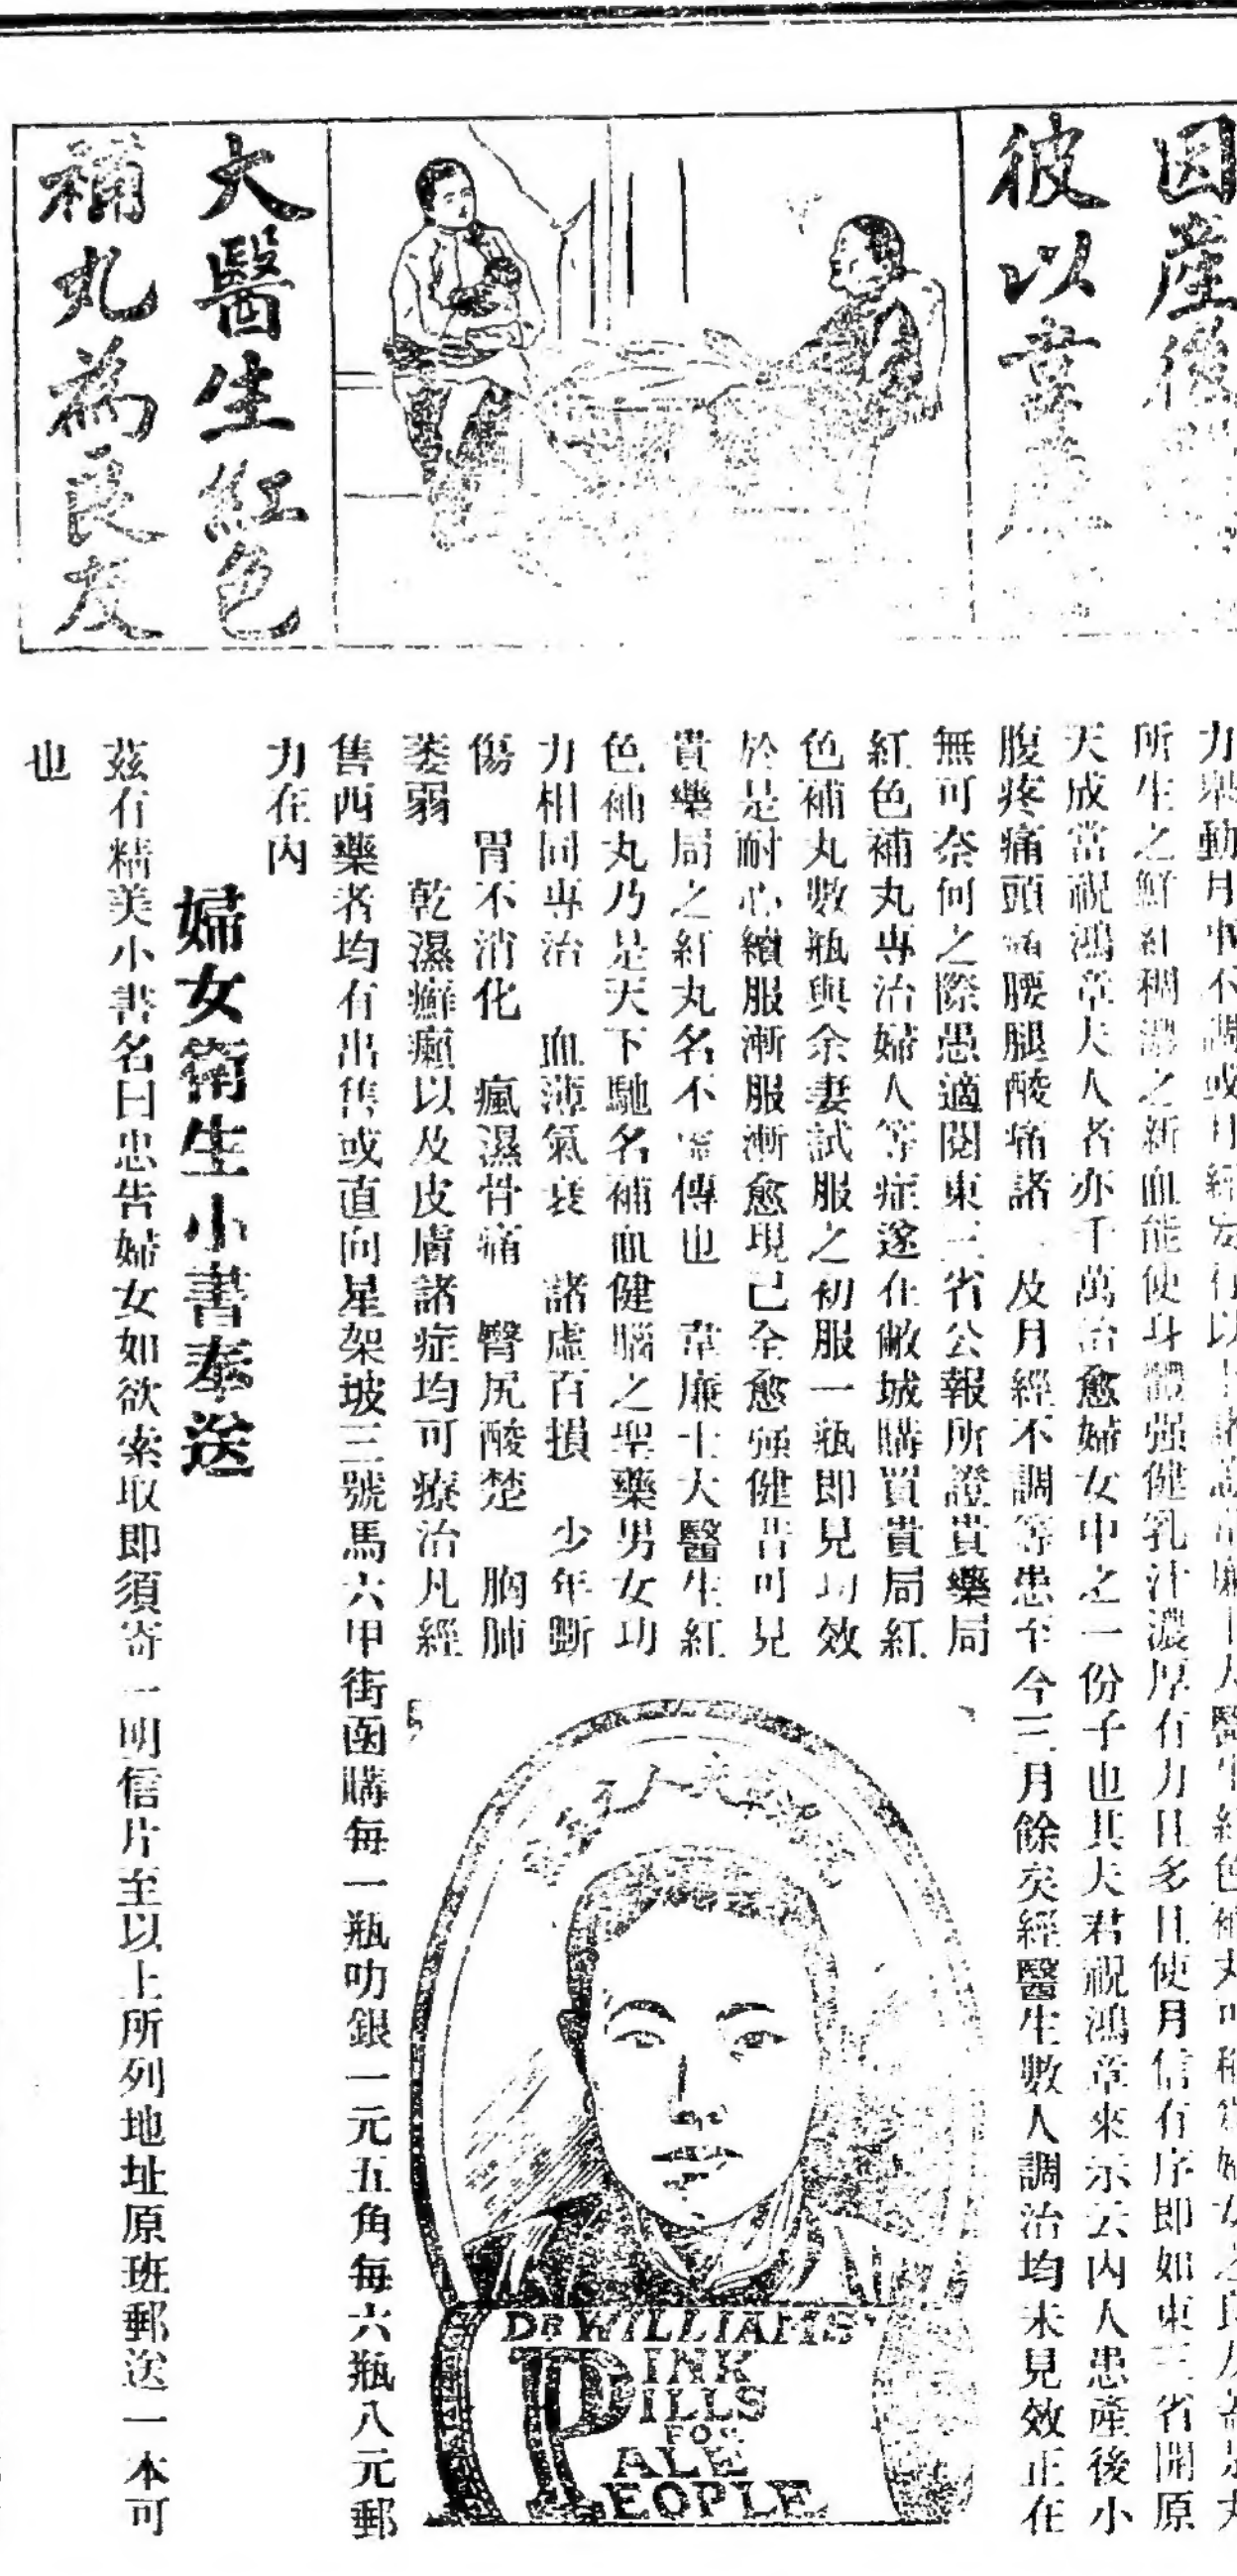 因產後
彼以韋廉
大醫生紅色
補丸為良友
力舉動月事不調或月經妄行以上諸
所生之鮮紅稠濃之新血能使身體强健乳汁濃厚有力且多且使月信有序即如東三省開原
天成當祝鴻章夫人者亦千萬治愈婦女中之一份子也其夫君祝鴻章來示云內人患產後小
腹疼痛頭痛腰腿酸痛諸 及月經不調等患至今三月餘矣經醫生數人調治均未見效正在
無可奈何之際愚適閱東三省公報所證貴藥局
紅色補丸專治婦人等症遂在敝城購買貴局紅
色補丸數瓶與余妻試服之初服一瓶即見功效
於是耐心續服漸服漸愈現已全愈强健昔可見
貴藥局之紅丸名不虛傳也 韋廉士大醫生紅
色補丸乃是天下馳名補血健腦之聖藥男女功
力相同專治 血薄氣衰 諸虛百損 少年斵
傷 胃不消化 瘋濕骨痛 臀尻酸楚 胸肺
萎弱 乾濕癬癩以及皮膚諸症均可療治凡經
售西藥者均有出售或直向星架坡三號馬六甲街函購每一瓶叻銀一元五角每六瓶八元郵
力在內
婦女衛生小書奉送
茲有精美小書名曰忠告婦女如欲索取即須寄一明信片至以上所列地址原班郵送一本可
也
DR WILLIAMS'
PINK
PILLS
FOR
PALE
PEOPLE